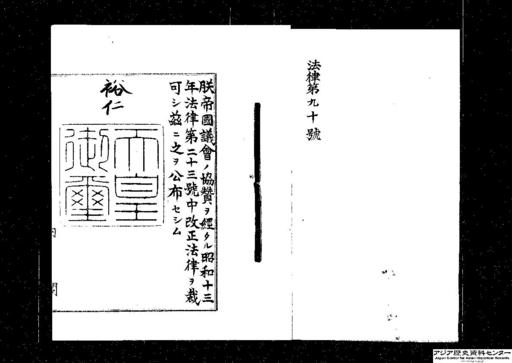 法律第九十號
朕帝國議會ノ協贊ヲ經タル昭和十三
年法律第二十三號中改正法律ヲ裁
可シ茲ニ之ヲ公布セシム
裕仁
天皇
御璽
内
閣
アジア歴史資料センター
Japan Center for Asian Historical Records